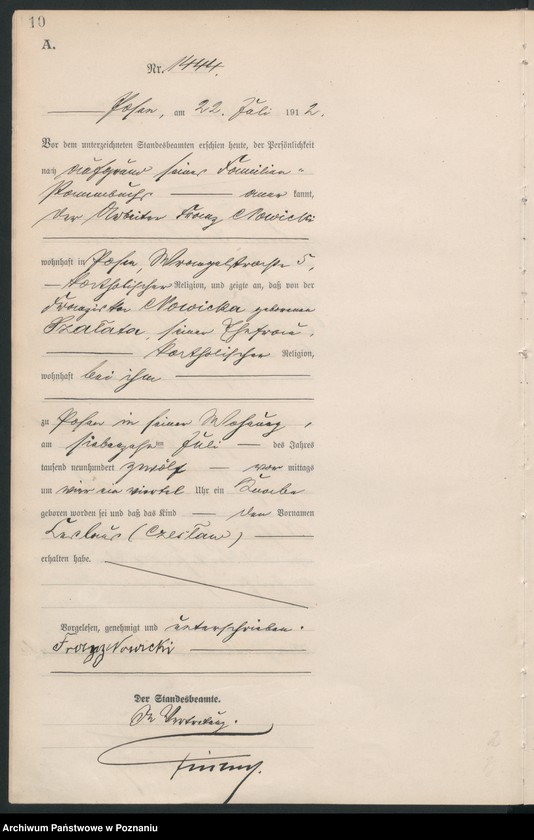 10
A.
Nr. 1444.
Posen, am 22. Juli 1912.
Vor dem unterzeichneten Standesbeamten erschien heute, der Persönlichkeit
nach aufgrund seines Familien-
Stammbuchs anerkannt,
der Arbeiter Franz Nowicki
wohnhaft in Posen, Wrangelstrasse 5,
katholischer Religion, und zeigte an, daß von der
Franziska Nowicka geborenen
Szałata, seiner Ehefrau,
katholischer Religion,
wohnhaft bei ihm
zu Posen in seiner Wohnung,
am siebzehnten Juli des Jahres
tausend neunhundert zwölf vormittags
um ein viertel Uhr ein Knabe
geboren worden sei und daß das Kind den Vornamen
Ceslaus (Czesław)
erhalten habe.
Vorgelesen, genehmigt und unterschrieben.
Franz Nowicki
Der Standesbeamte.
In Vertretung.
Archiwum Państwowe w Poznaniu